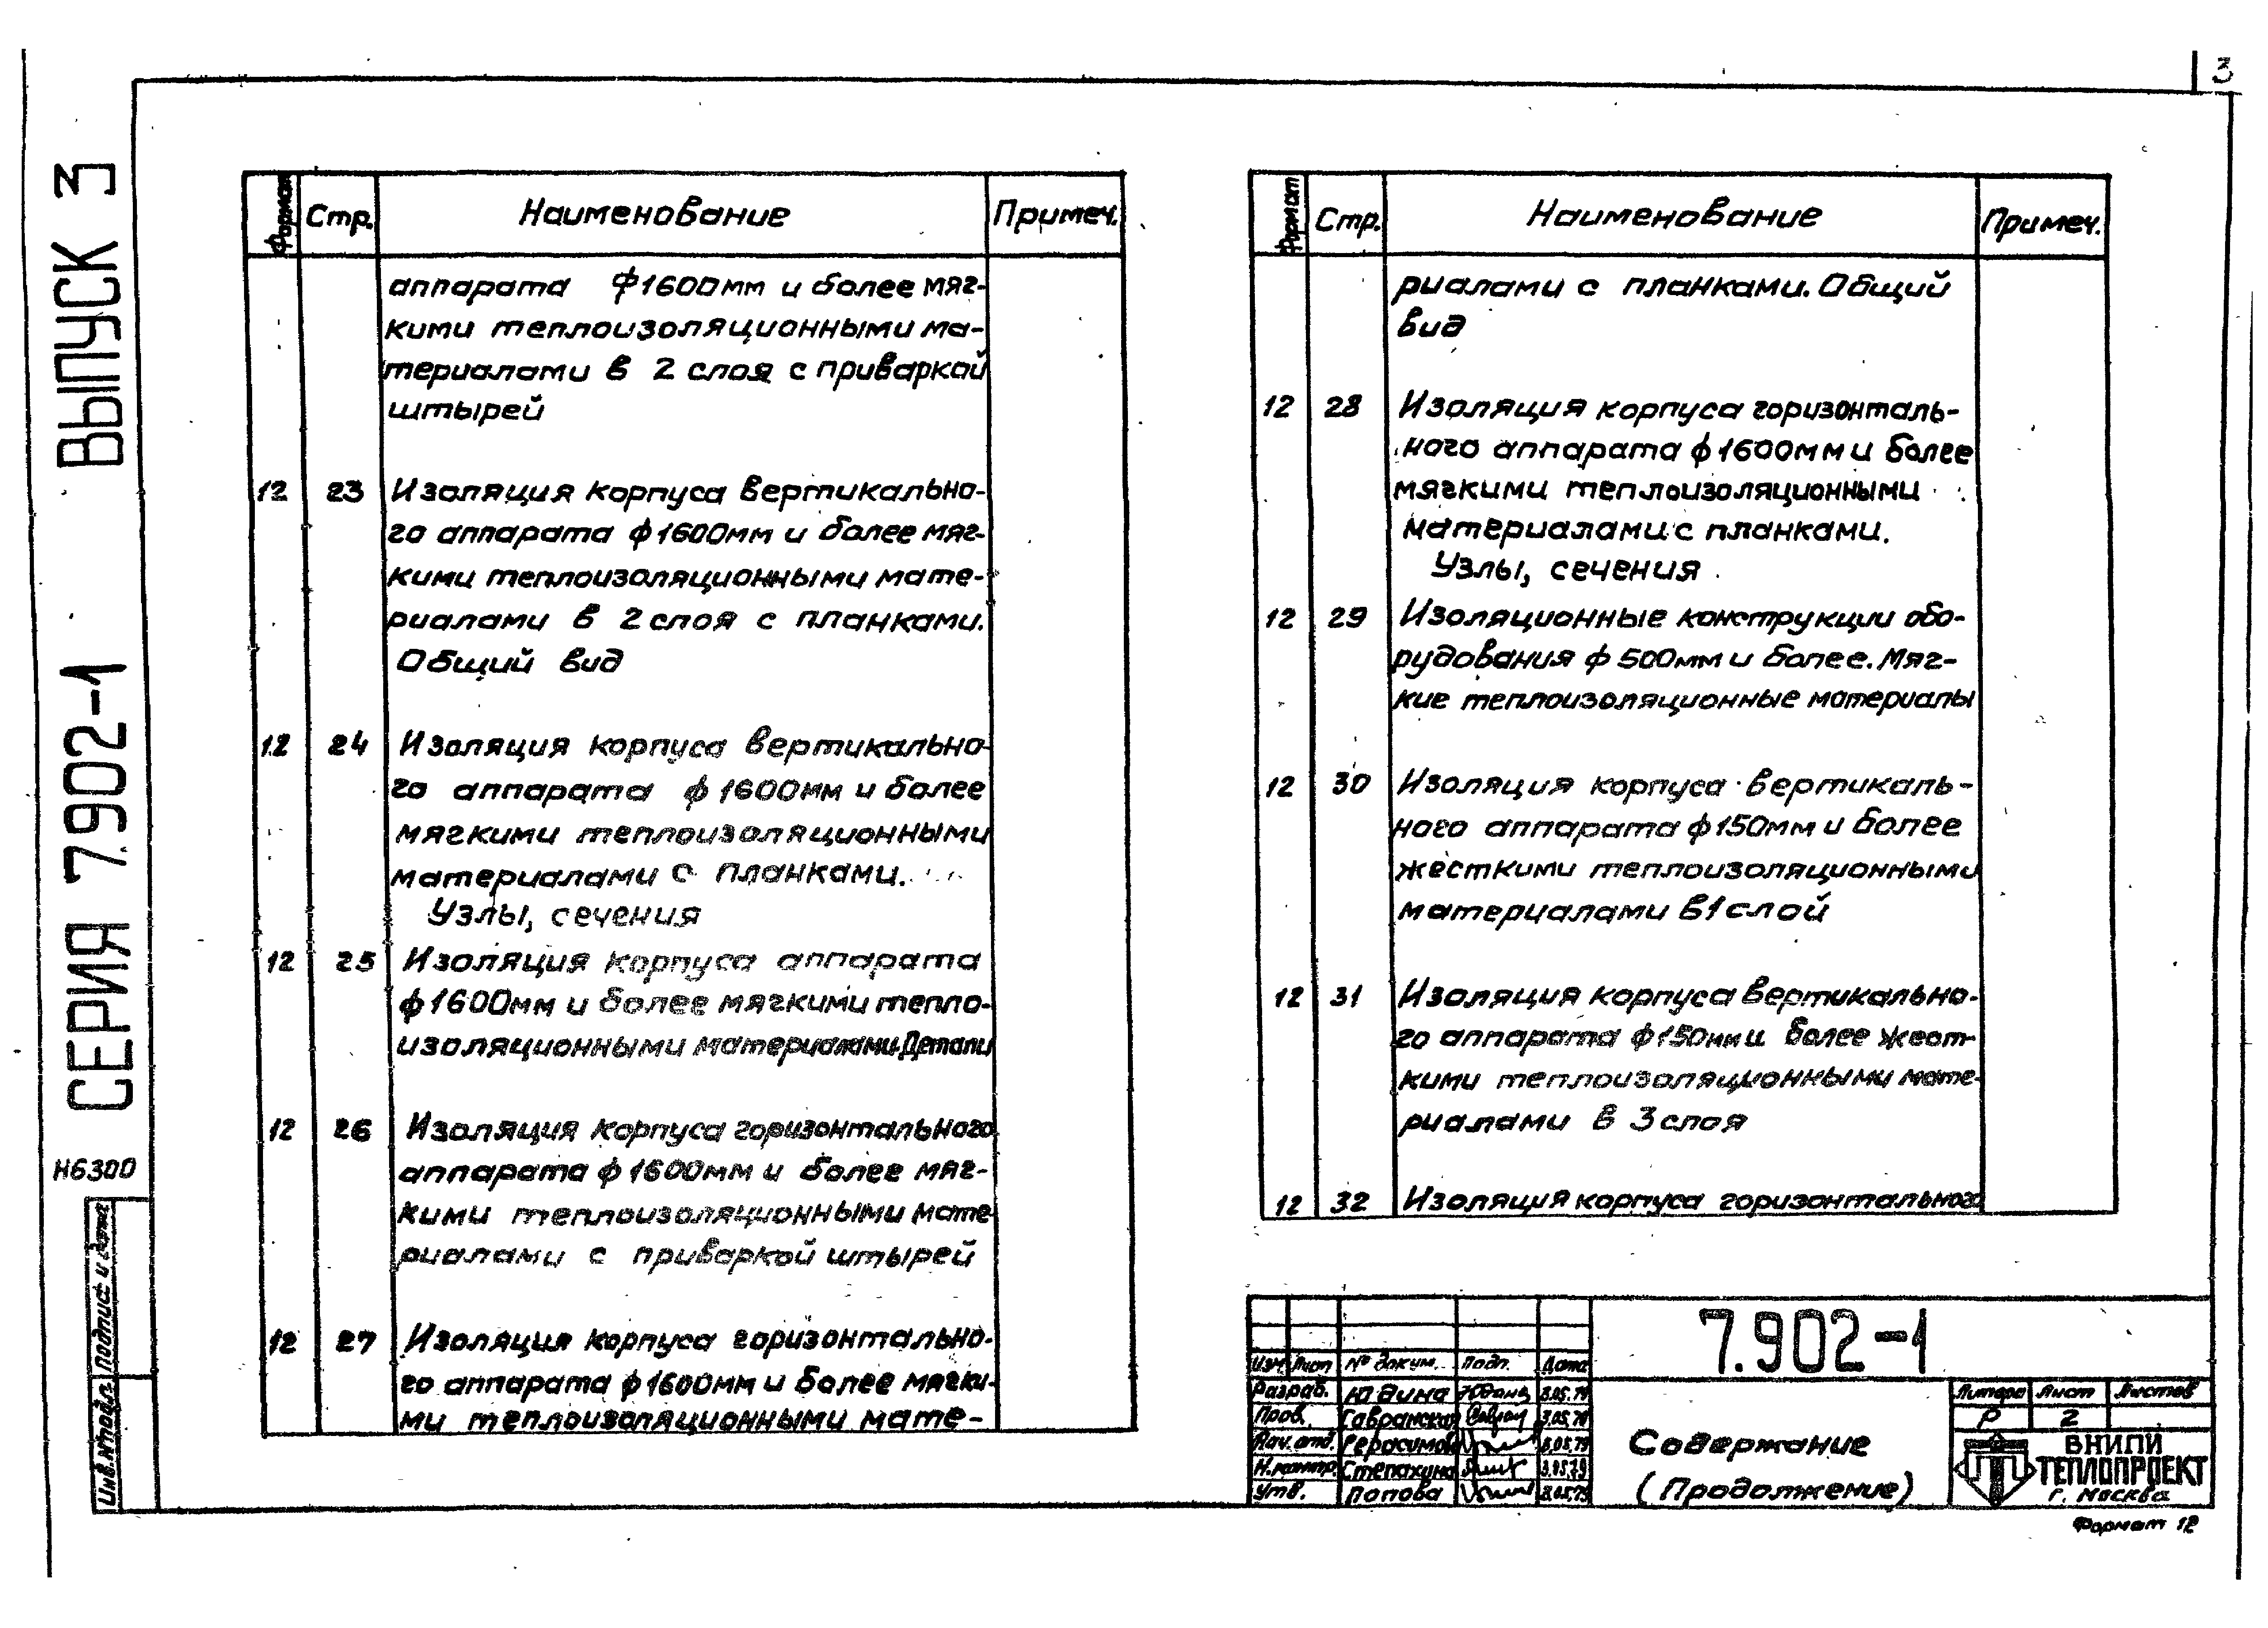 3
СЕРИЯ 7.902-1 ВЫПУСК 3
Н6300
Инв.№подл. Подпись и дата
Формат Стр. Наименование Примеч.
аппарата ф1600мм и более мяг-
кими теплоизоляционными ма-
териалами в 2 слоя с приваркой
штырей
12 23 Изоляция корпуса вертикально-
го аппарата ф1600мм и более мяг-
кими теплоизоляционными мате-
риалами в 2 слоя с планками.
Общий вид
12 24 Изоляция корпуса вертикально-
го аппарата ф1600мм и более
мягкими теплоизоляционными
материалами с планками.
Узлы, сечения
12 25 Изоляция корпуса аппарата
ф1600мм и более мягкими тепло-
изоляционными материалами. Детали
12 26 Изоляция корпуса горизонтального
аппарата ф1600мм и более мяг-
кими теплоизоляционными мате
риалами с приваркой штырей
12 27 Изоляция корпуса горизонтально-
го аппарата ф1600мм и более мягки-
ми теплоизоляционными мате-
Формат Стр. Наименование Примеч.
риалами с планками. Общий
вид
12 28 Изоляция корпуса горизонталь-
ного аппарата ф1600мм и более
мягкими теплоизоляционными
материалами с планками.
Узлы, сечения
12 29 Изоляционные конструкции обо-
рудования ф500мм и более. Мяг-
кие теплоизоляционные материалы
12 30 Изоляция корпуса вертикаль-
ного аппарата ф150мм и более
жесткими теплоизоляционными
материалами в 1 слой
12 31 Изоляция корпуса вертикально-
го аппарата ф150мм и более жест-
кими теплоизоляционными мате-
риалами в 3 слоя
12 32 Изоляция корпуса горизонтального
7.902-1
Изм Лист № докум. Подп. Дата
Разраб. Юдина
Пров. Гавранская
Нач. отд. Герасимов
Н.контр. Степахина
Утв. Попова
Содержание
(Продолжение)
Литера Лист Листов
Р 2
ВНИПИ
ТЕПЛОПРОЕКТ
г. Москва
Формат 12